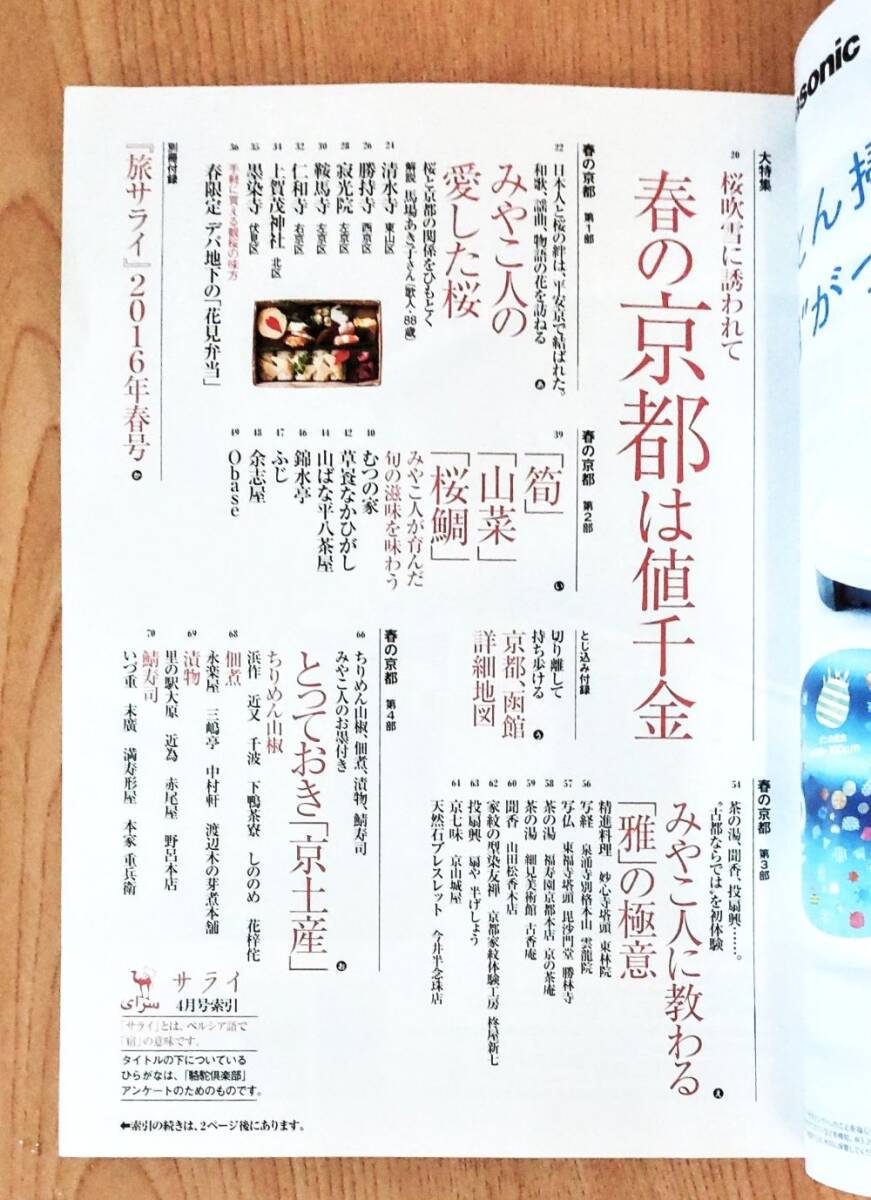 大特集
20 桜吹雪に誘われて
春の京都は値千金
春の京都 第1部
22 日本人と桜の絆は、平安京で結ばれた。
和歌、謡曲、物語の花を訪ねる
みやこ人の
愛した桜 あ
桜と京都の関係をひもとく
解説 馬場あき子さん(歌人・88歳)
24 清水寺 東山区
26 勝持寺 西京区
28 寂光院 左京区
30 鞍馬寺 左京区
32 仁和寺 右京区
34 上賀茂神社 北区
35 墨染寺 伏見区
手軽に買える観桜の味方
36 春限定 デパ地下の「花見弁当」
別冊付録
『旅サライ』2016年春号 か
春の京都 第2部
39 「筍」
「山菜」
「桜鯛」 い
みやこ人が育んだ
旬の滋味を味わう
40 むつの家
42 草喰なかひがし
44 山ばな平八茶屋
46 錦水亭
47 ふじ
48 余志屋
49 Obase
とじ込み付録
切り離して
持ち歩ける
京都、函館
詳細地図 う
春の京都 第3部
54 茶の湯、聞香、投扇興……。
“古都ならでは”を初体験
みやこ人に教わる
「雅」の極意 え
精進料理 妙心寺塔頭 東林院
56 写経 泉涌寺別格本山 雲龍院
57 写仏 東福寺塔頭 毘沙門堂 勝林寺
58 茶の湯 福寿園京都本店 京の茶庵
59 茶の湯 細見美術館 古香庵
60 聞香 山田松香木店
62 家紋の型染友禅 京都家紋体験工房 柊屋新七
63 投扇興 扇や 半げしょう
64 京七味 京山城屋
天然石ブレスレット 今井半念珠店
春の京都 第4部
66 ちりめん山椒、佃煮、漬物、鯖寿司
みやこ人のお墨付き
とっておき「京土産」 お
ちりめん山椒
浜作 近又 千波 下鴨茶寮 しののめ 花梓侘
68 佃煮
永楽屋 三嶋亭 中村軒 渡辺木の芽煮本舗
69 漬物
里の駅大原 近為 赤尾屋 野呂本店
70 鯖寿司
いづ重 末廣 満寿形屋 本家 重兵衛
サライ
سرای
4月号索引
「サライ」とは、ペルシア語で
「宿」の意味です。
タイトルの下についている
ひらがなは、「駱駝倶楽部」
アンケートのためのものです。
⬅索引の続きは、2ページ後にあります。
sonic